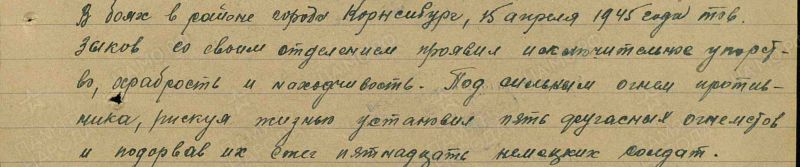 В боях в районе города Корнсибург, 15 апреля 1945 года тов.
Зыков со своим отделением проявил исключительное упорст-
во, храбрость и находчивость. Под сильным огнем против-
ника, рискуя жизнью установил пять фугасных огнеметов
и подорвав их сжег пятнадцать немецких солдат.